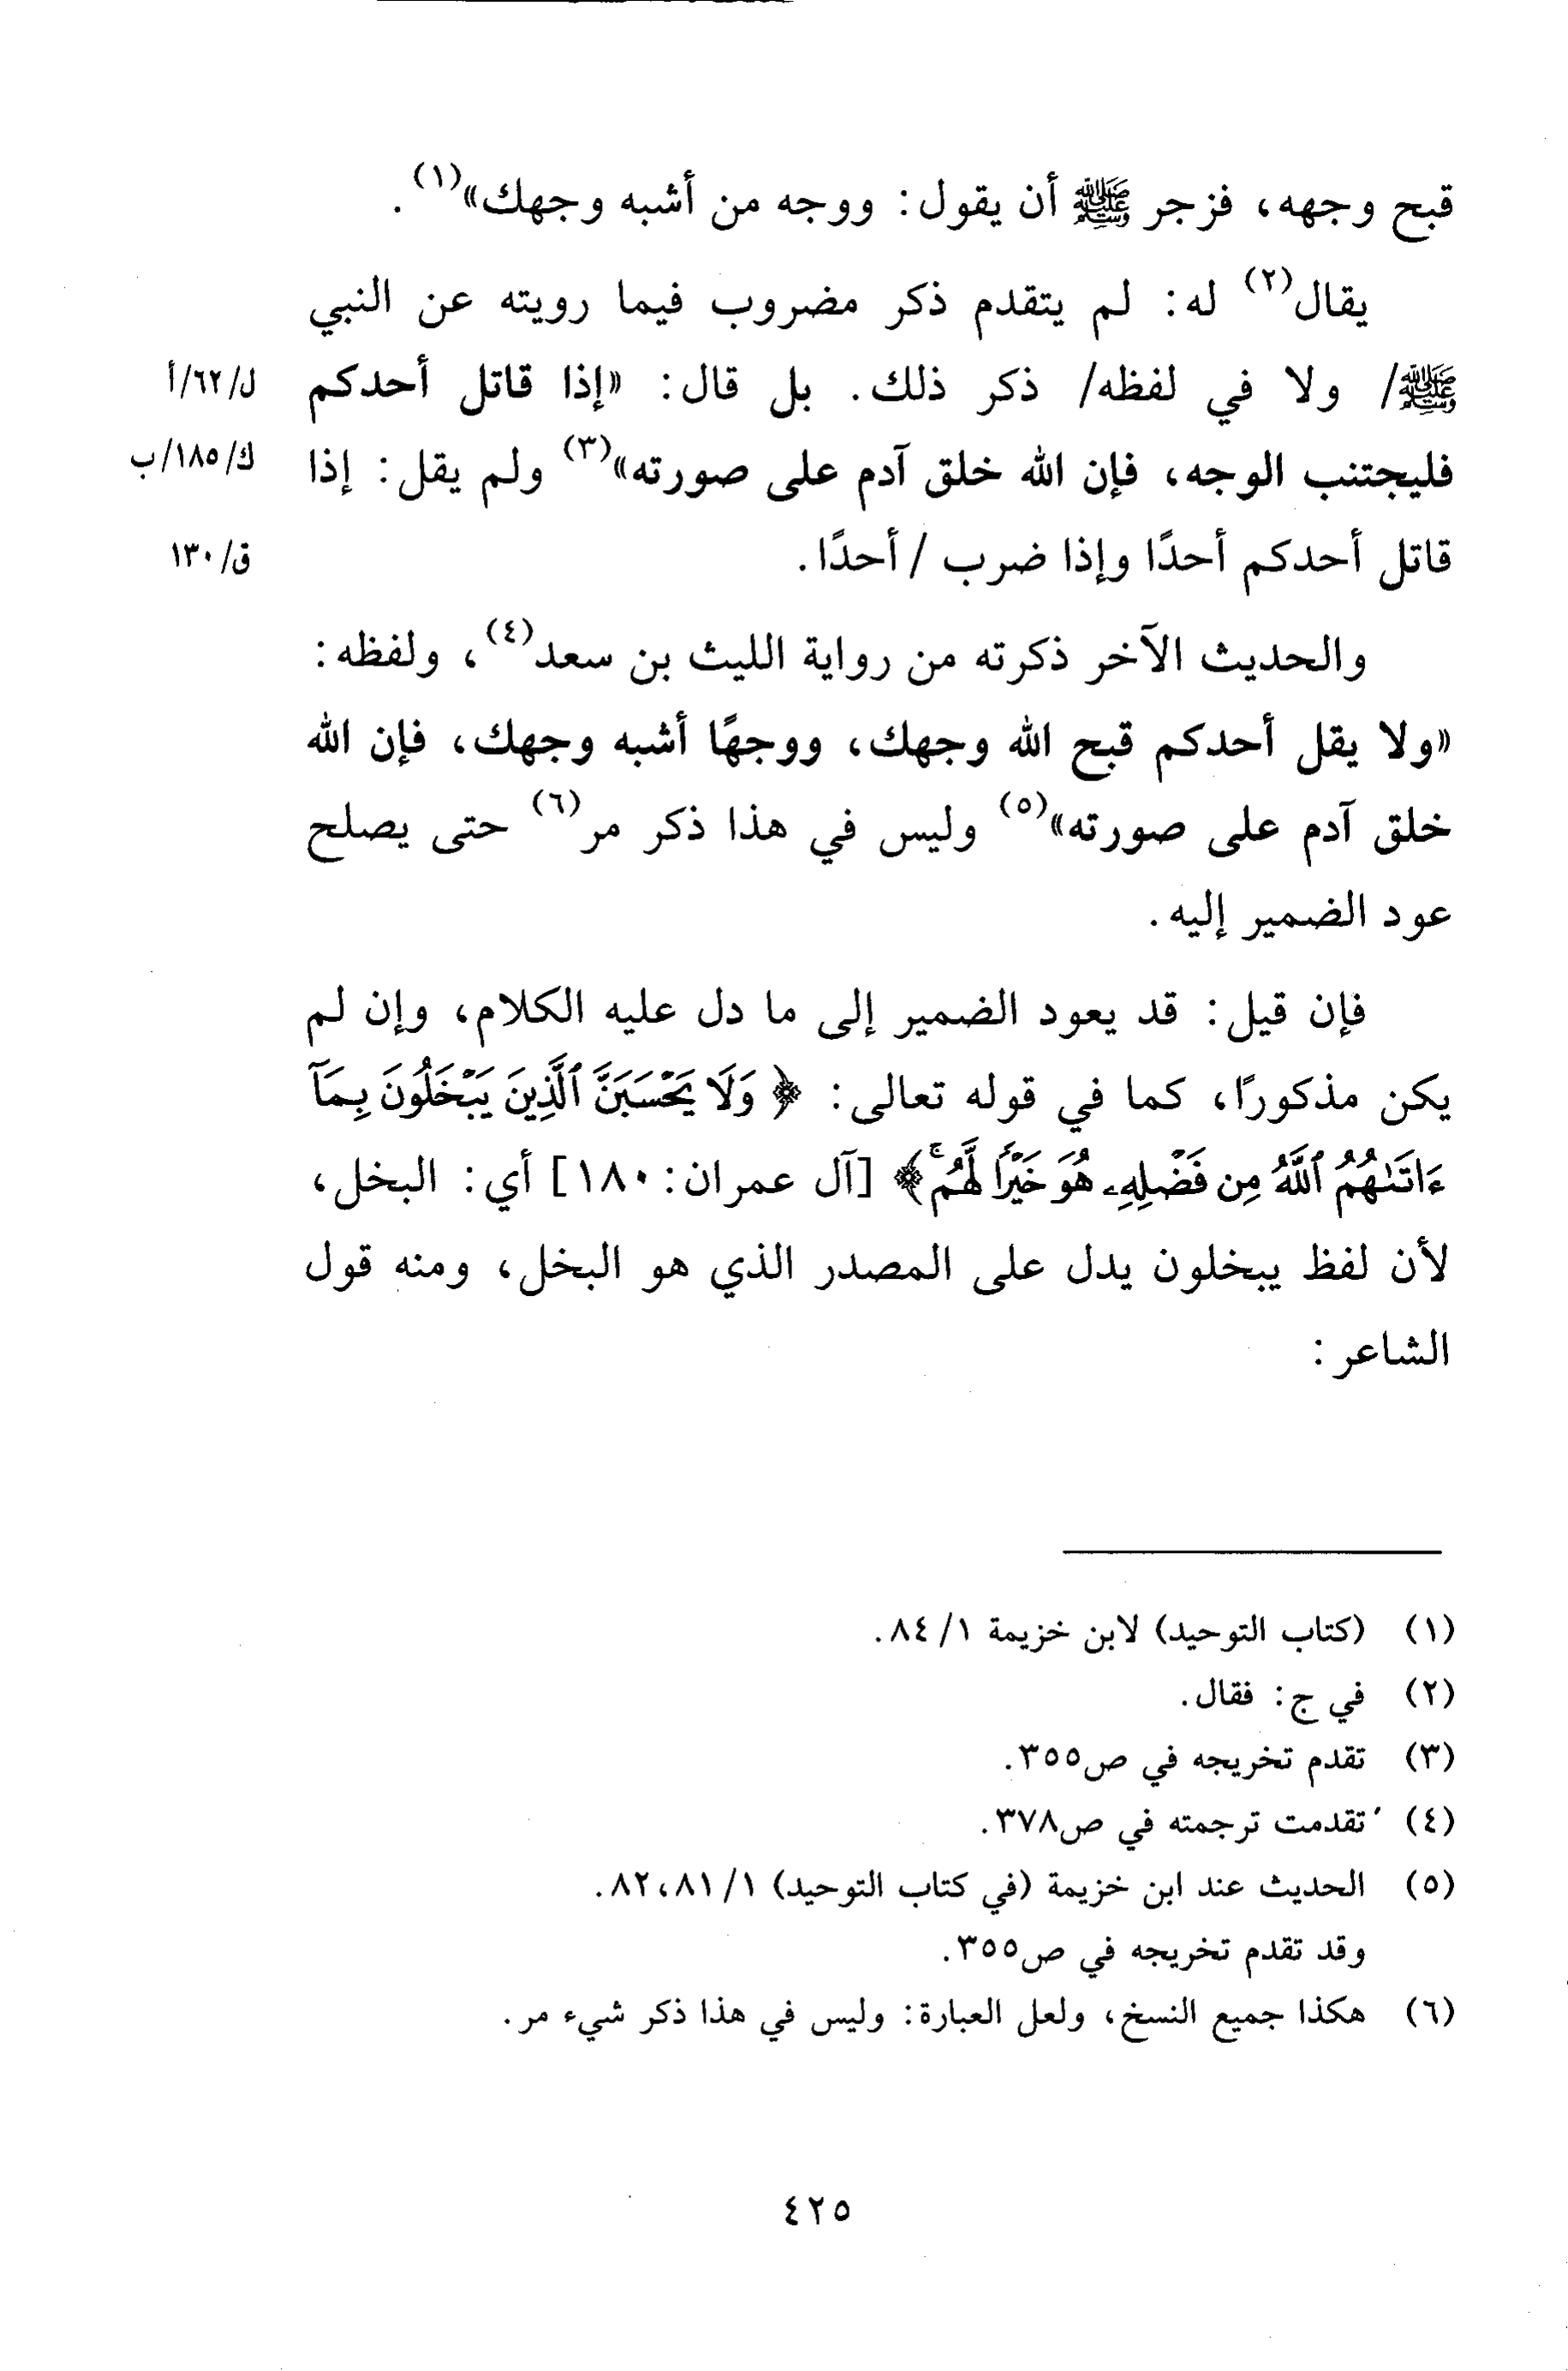 قبح وجهه، فزجر ﷺ أن يقول: ووجه من أشبه وجهك»(١).
يقال(٢) له: لم يتقدم ذكر مضروب فيما رويته عن النبي
ﷺ/ ولا في لفظه/ ذكر ذلك. بل قال: «إذا قاتل أحدكم
ل/٦٢/أ
فليجتنب الوجه، فإن الله خلق آدم على صورته»(٣) ولم يقل: إذا
ك/١٨٥/ب
قاتل أحدكم أحدًا وإذا ضرب / أحدًا.
ق/١٣٠
والحديث الآخر ذكرته من رواية الليث بن سعد(٤)، ولفظه:
«ولا يقل أحدكم قبح الله وجهك، ووجهًا أشبه وجهك، فإن الله
خلق آدم على صورته»(٥) وليس في هذا ذكر مر(٦) حتى يصلح
عود الضمير إليه.
فإن قيل: قد يعود الضمير إلى ما دل عليه الكلام، وإن لم
يكن مذكورًا، كما في قوله تعالى: ﴿ وَلَا يَحْسَبَنَّ ٱلَّذِينَ يَبْخَلُونَ بِمَآ
ءَاتَىٰهُمُ ٱللَّهُ مِن فَضْلِهِۦ هُوَ خَيْرًا لَّهُمۚ﴾ [آل عمران: ١٨٠] أي: البخل،
لأن لفظ يبخلون يدل على المصدر الذي هو البخل، ومنه قول
الشاعر:
(١) (كتاب التوحيد) لابن خزيمة ١/ ٨٤.
(٢) في ج: فقال.
(٣) تقدم تخريجه في ص٣٥٥.
(٤) تقدمت ترجمته في ص٣٧٨.
(٥) الحديث عند ابن خزيمة (في كتاب التوحيد) ١/ ٨١،٨٢.
وقد تقدم تخريجه في ص٣٥٥.
(٦) هكذا جميع النسخ، ولعل العبارة: وليس في هذا ذكر شيء مر.
٤٢٥